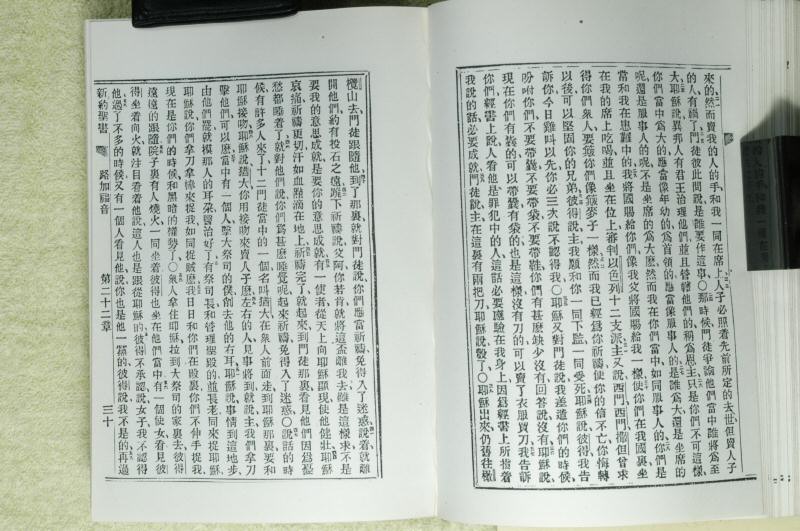 來的然而賣我的人的手和我一同在席上人子必照着先前所定的去世但賣人子
的人有禍了門徒彼此問說是誰要作這事〇那時候門徒爭論他們當中誰將爲至
大耶穌說異邦人有君王治理他們並且管轄他們的稱爲恩主只是你們不可這樣
你們當中爲大的應當像年幼的爲首領的應當像服事人的是誰爲大還是坐席的
呢還是服事人的呢不是坐席的爲大麽然而我在你們當中如同服事人的你們是
當和我在患難中的我將國賜給你們像我父將國賜給我一樣使你們在我國裏坐
在我的席上吃喝並且坐在位上審判以色列十二支派主又說西門西門撒但曾求
得你們衆人要篩你們像篩麥子一樣然而我已經爲你祈禱使你的信不亡你悔轉
以後可以堅固你的兄弟彼得說主我願和你一同下監一同受死耶穌說彼得我告
訴你今日雞叫以先你必三次說不認得我〇耶穌又對門徒說我差遣你們的時候
吩咐你們不要帶錢不要帶袋不要帶鞋你們有甚麽缺少沒有回答說沒有耶穌說
現在你們有錢的可以帶錢有袋的也是這樣沒有刀的可以賣了衣服買刀我告訴
你們經書上說人看他是罪犯中的人這話必要應驗在我身上因爲經書上所指着
我說的話必要成就門徒說主在這裏有兩把刀耶穌說彀了〇耶穌出來仍舊往橄
欖山去門徒跟隨他到了那裏就對門徒說你們應當祈禱免得入了迷惑說着就離
開他們約有投石之遠跪下祈禱說父阿你若肯就將這盃離我去雖是這樣求不是
要我的意思成就是要你的意思成就有一使者從天上向耶穌顯現使他健壯耶穌
哀痛祈禱更切汗如血點滴在地上祈禱完了就起來到門徒那裏看見他們因爲憂
愁都睡着了就對他們說你們爲甚麽睡覺呢起來祈禱免得入了迷惑〇說話的時
候有許多人來了十二門徒當中的一個名叫猶大在衆人前面走到耶穌那裏要和
耶穌接吻耶穌說猶大你用接吻來賣人子麽左右的人見事將到就說主我們拿刀
擊他們可以麽當中有一個人擊大祭司的僕削去他的右耳耶穌說事情到這地步
由他們罷就摸那人的耳朵醫治好了有祭司長和管理聖殿的並長老同來捉耶穌
耶穌說你們拿刀拿棒來捉我如同捉賊麽我日日和你們在殿裏你們不伸手捉我
現在是你們的時候和黑暗的權勢了〇衆人拿住耶穌拉到大祭司的家裏去彼得
遠遠的跟隨院子裏有人燒火一同坐着彼得也坐在他們當中有一個使女看見彼
得坐着向火就注目看着他說這人也是跟從耶穌的彼得不承認說女子我不認得
他過了不多的時候又有一個人看見他說你也是他一黨的彼得說我不是的再過
新約聖書 路加福音 第二十二章 三十